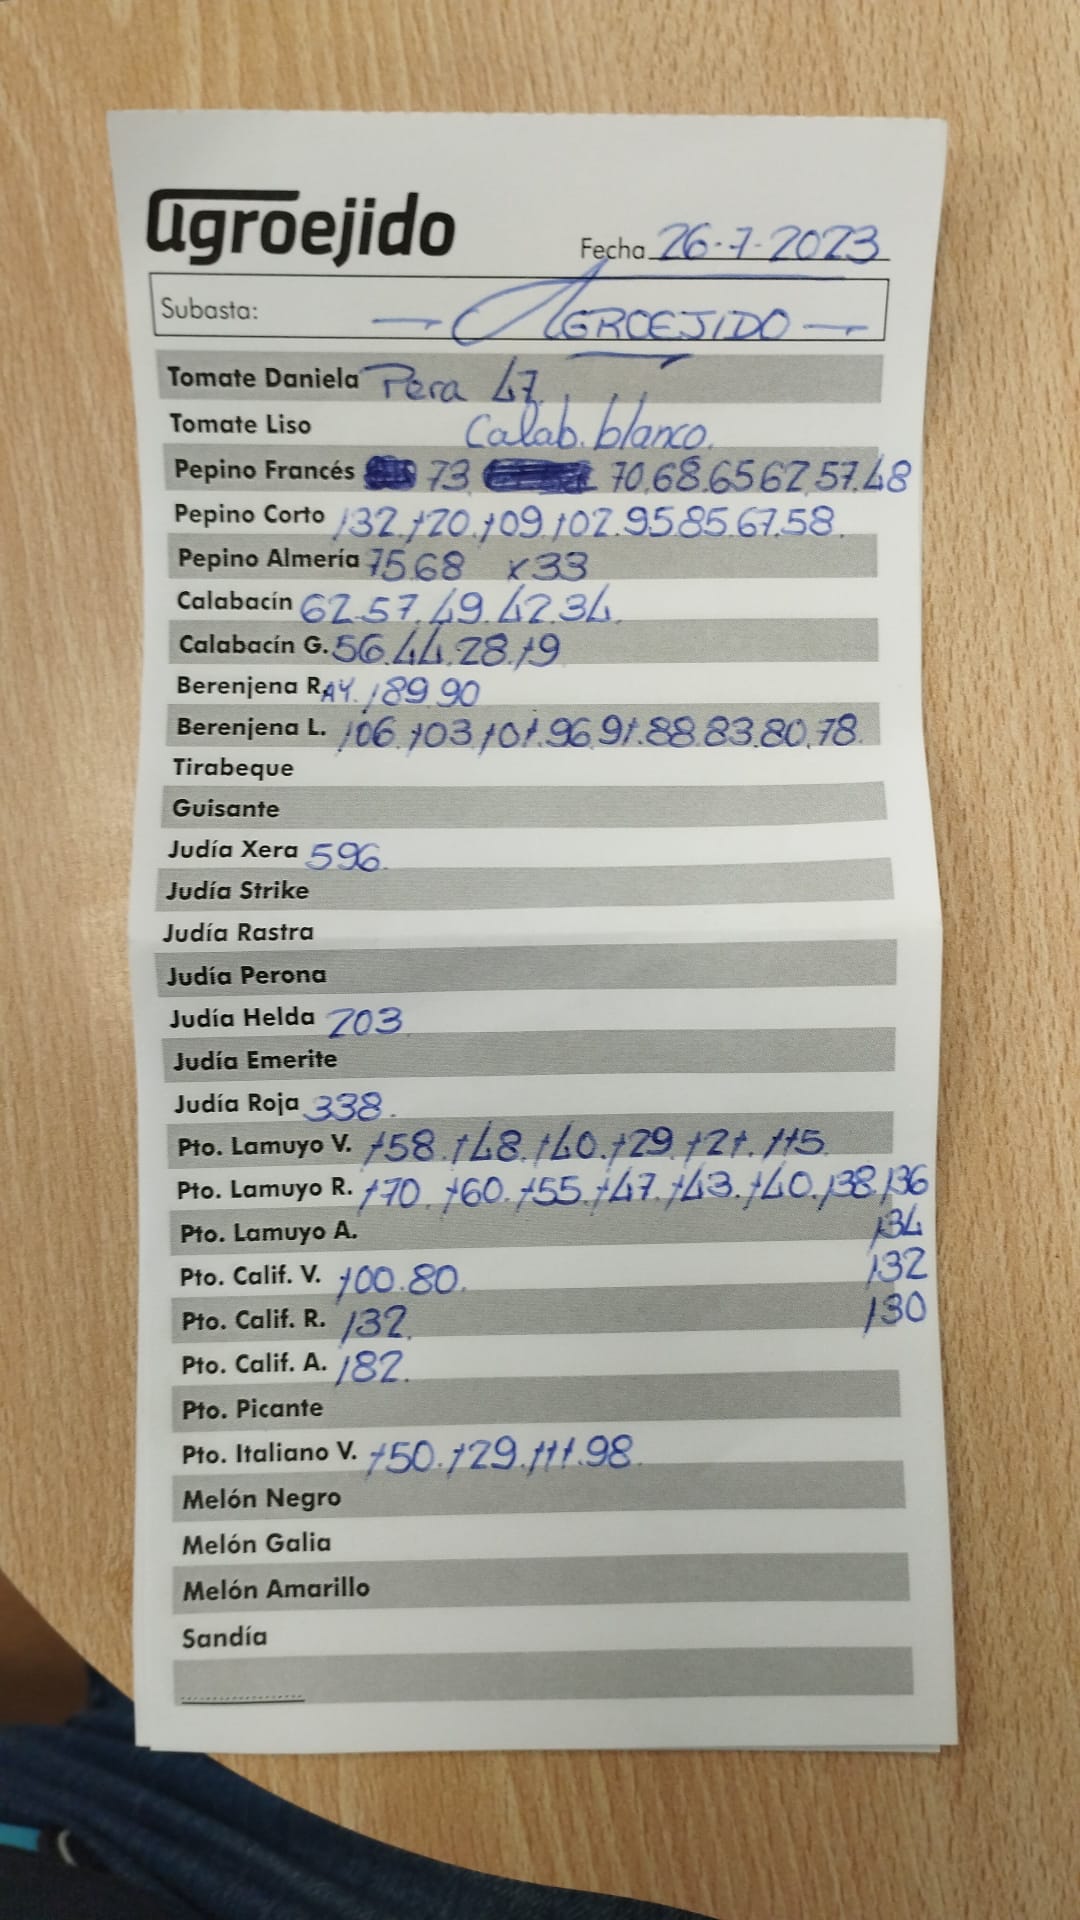 agroejido
Fecha 26-7-2023
Subasta: — AGROEJIDO —
Tomate Daniela Pera 47
Tomate Liso Calab. blanco.
Pepino Francés 73 70.68.65 62.57.48
Pepino Corto 132.120.109.102.95 85.67.58.
Pepino Almería 75.68 x33
Calabacín 62.57.49.42.34.
Calabacín G. 56.44.28.19
Berenjena R. AY. 189.90
Berenjena L. 106.103.101.96.91.88.83.80.78.
Tirabeque
Guisante
Judía Xera 596.
Judía Strike
Judía Rastra
Judía Perona
Judía Helda 203
Judía Emerite
Judía Roja 338.
Pto. Lamuyo V. 158.148.140.129.121.115.
Pto. Lamuyo R. 170.160.155.147.143.140.138.136
Pto. Lamuyo A. 134
Pto. Calif. V. 100.80. 132
Pto. Calif. R. 132. 130
Pto. Calif. A. 182.
Pto. Picante
Pto. Italiano V. 150.129.111.98.
Melón Negro
Melón Galia
Melón Amarillo
Sandía